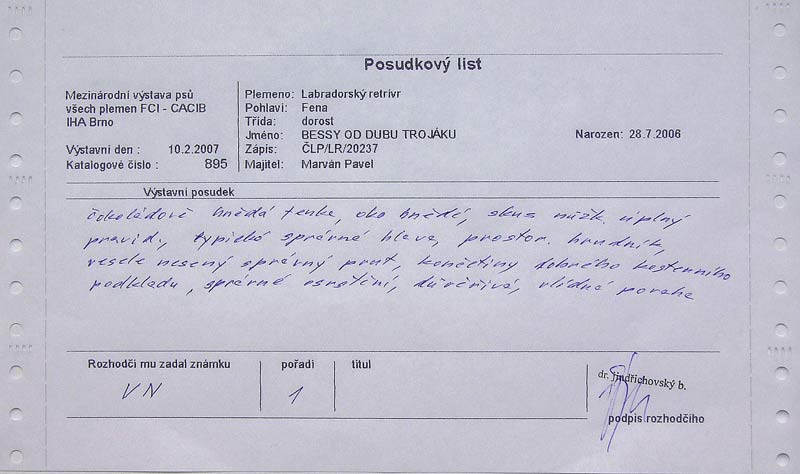 Posudkový list
Mezinárodní výstava psů
všech plemen FCI - CACIB
IHA Brno
Výstavní den : 10.2.2007
Katalogové číslo : 895
Plemeno: Labradorský retrívr
Pohlaví: Fena
Třída: dorost
Jméno: BESSY OD DUBU TROJÁKU
Narozen: 28.7.2006
Zápis: ČLP/LR/20237
Majitel: Marván Pavel
Výstavní posudek
čokoládově hnědá fenka, oko hnědé, skus nůžk. úplný
pravid., typická správná hlava, prostor. hrudník,
vesele nesený správný prut, končetiny dobrého kostenního
podkladu, správné osrstění, důvěřivá, vlídná povaha
Rozhodčí mu zadal známku
pořadí
titul
VN
1
dr. Jindřichovský b.
podpis rozhodčího